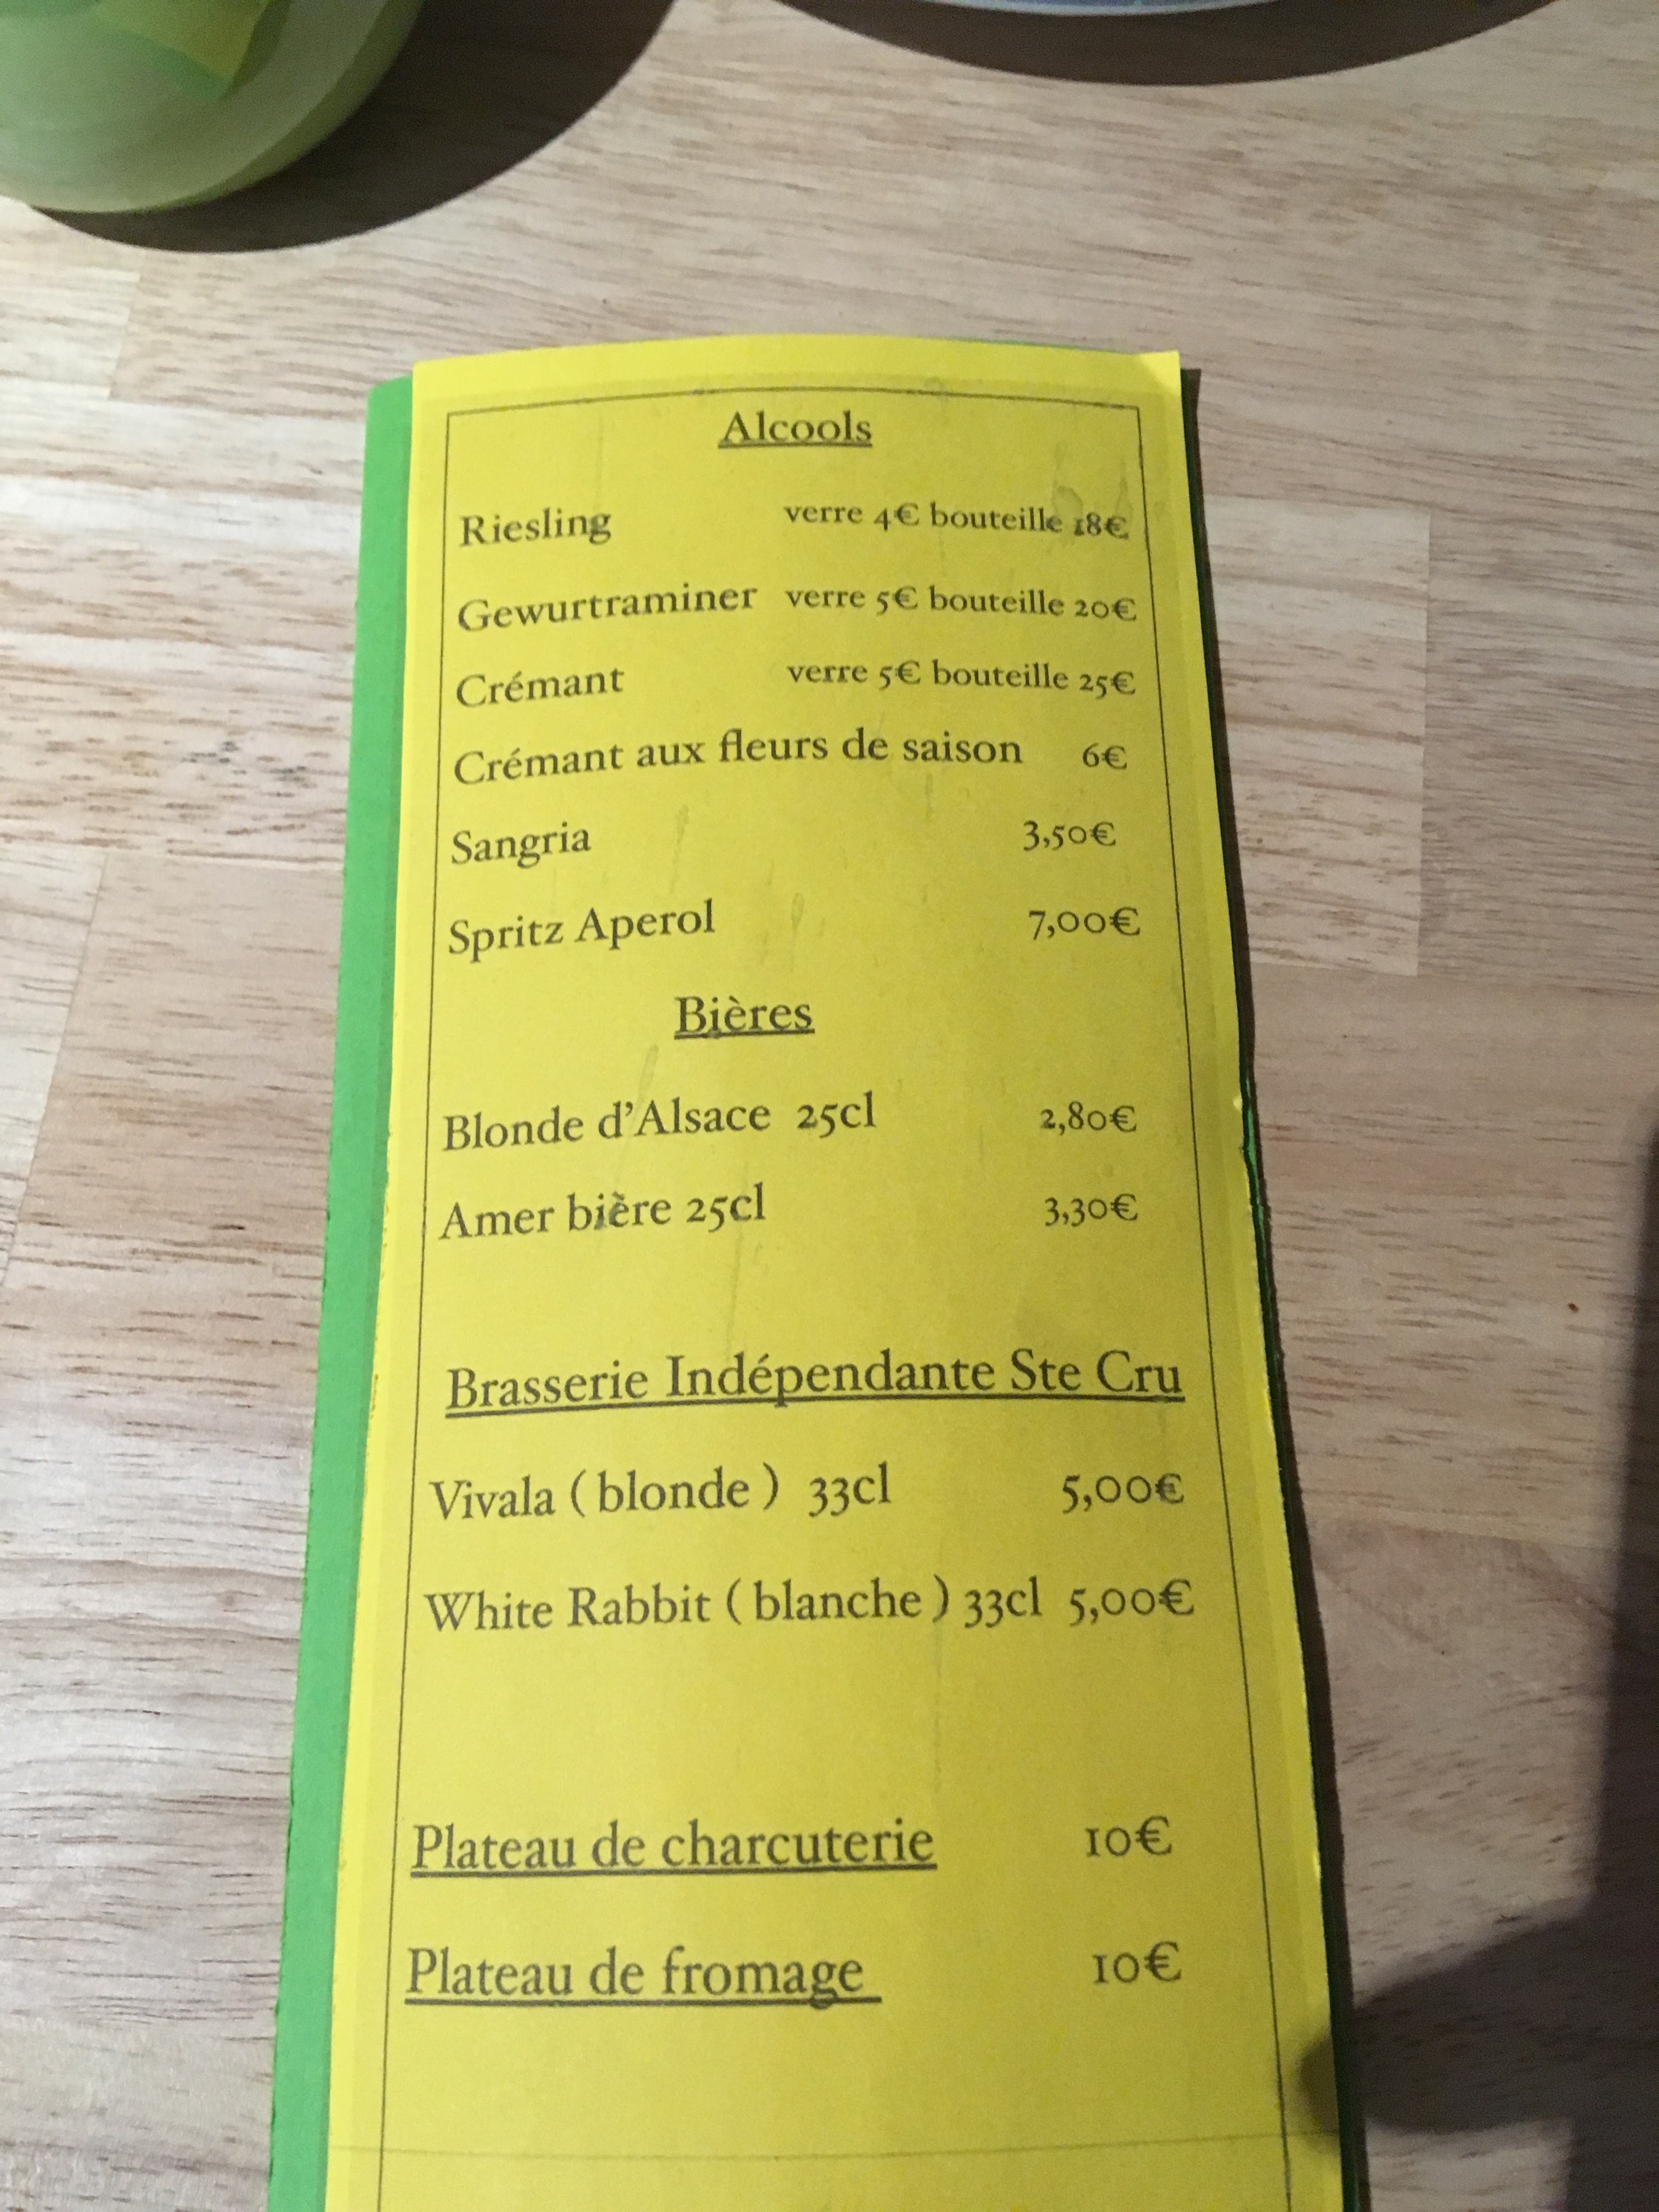 Alcools
Riesling verre 4€ bouteille 18€
Gewurtraminer verre 5€ bouteille 20€
Crémant verre 5€ bouteille 25€
Crémant aux fleurs de saison 6€
Sangria 3,50€
Spritz Aperol 7,00€
Bières
Blonde d'Alsace 25cl 2,80€
Amer bière 25cl 3,30€
Brasserie Indépendante Ste Cru
Vivala ( blonde ) 33cl 5,00€
White Rabbit ( blanche ) 33cl 5,00€
Plateau de charcuterie 10€
Plateau de fromage 10€